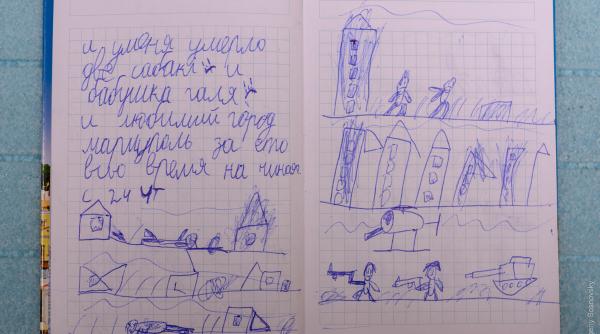 и уменя умерло
две сабаки и
бабушка галя
и любимий город
мариуполь за ето
всю время на чиная
с 24 чт
Sosnovsky